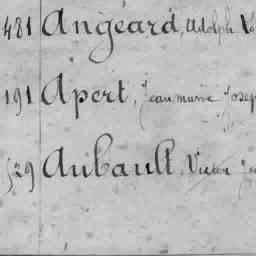 481 Angéard, Adolph
191 Apert, Jean marie Josep
529 Aubault, Victor